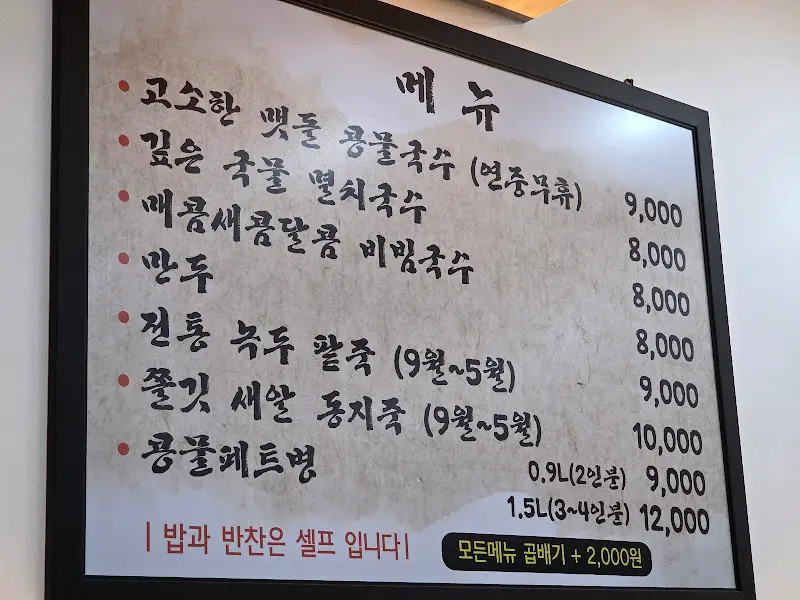 메뉴
고소한 맷돌 콩물국수 (연중무휴) 9,000
깊은 국물 멸치국수 8,000
매콤새콤달콤 비빔국수 8,000
만두 8,000
전통 녹두 팥죽 (9월~5월) 9,000
쫄깃 새알 동지죽 (9월~5월) 10,000
콩물페트병 0.9L(2인분) 9,000
1.5L(3~4인분) 12,000
| 밥과 반찬은 셀프 입니다 |
모든메뉴 곱배기 + 2,000원